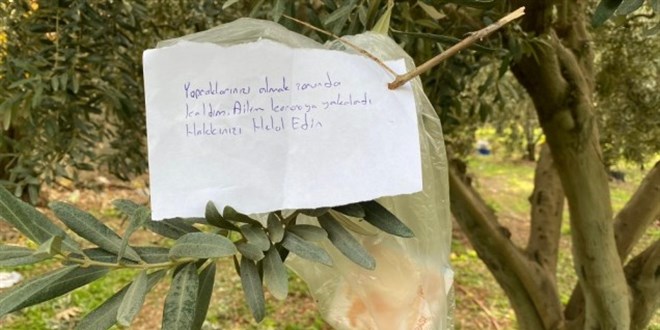 Yapraklarınızı almak zorunda
kaldım. Ailem koronaya yakalandı
Hakkınızı Helal Edin